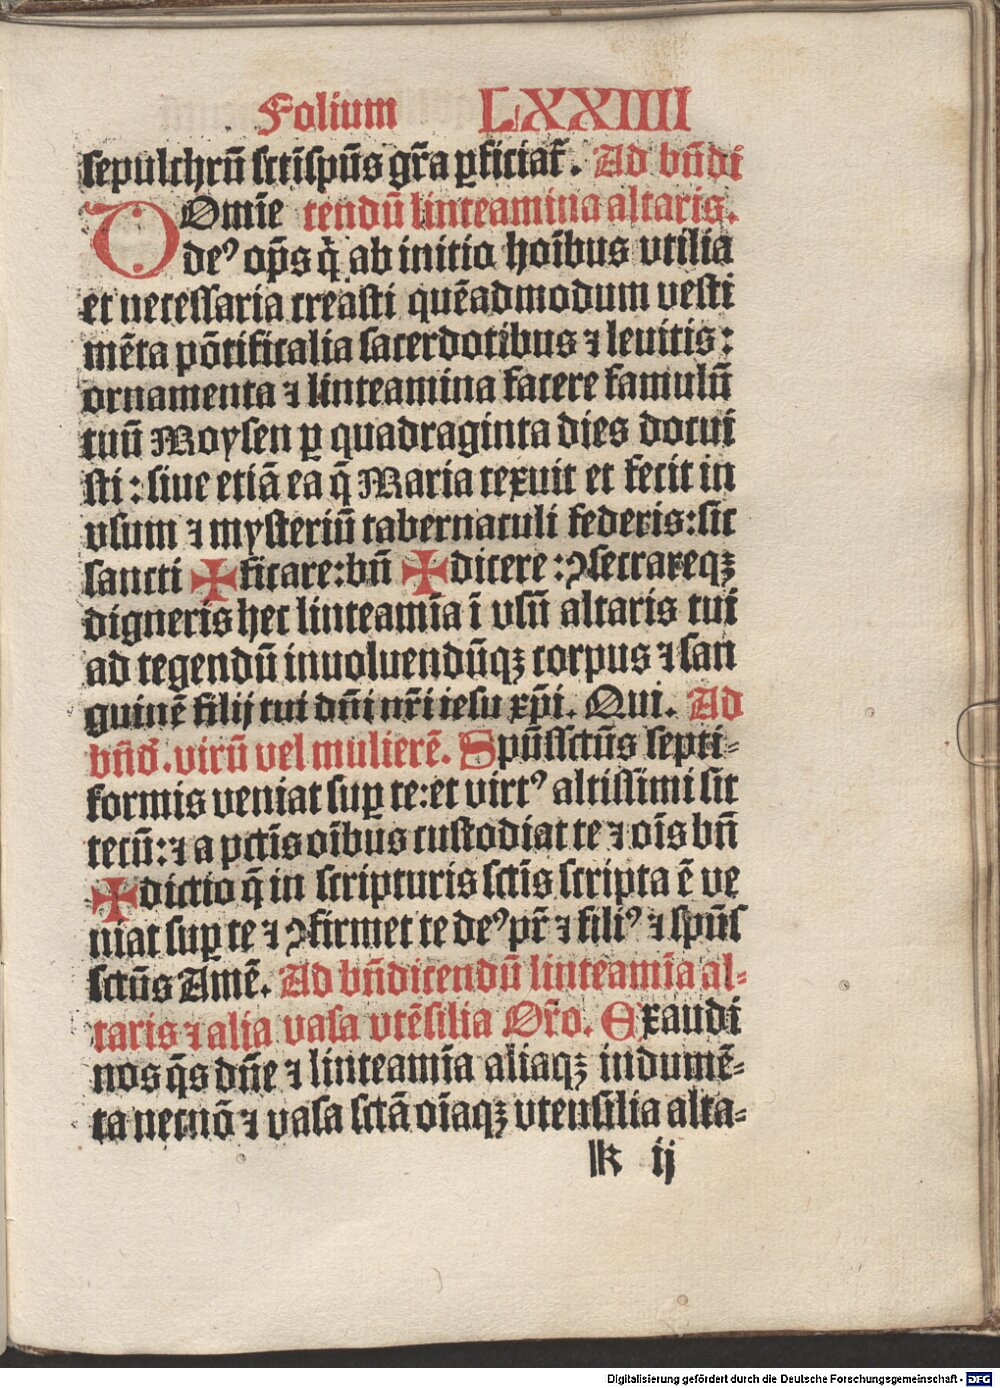 Folium LXXIIII
sepulchrū sctīspūs gr̄a ꝑficiat̄. Ad bn̄di
DOmīe tendū linteamina altaris.
deꝰ op̄s q̇ ab initio hoībus vtilia
et necessaria creasti quēadmodum vesti
mēta pōtificalia sacerdotibus ⁊ leuitis:
ornamenta ⁊ linteamina facere famulū
tuū Moysen ꝑ quadraginta dies docui
sti: siue etiā ea q̄ Maria texuit et fecit in
vsum ⁊ mysteriū tabernaculi federis: sic
sancti ✠ ficare: bn̄ ✠ dicere: ꝯsecrareqꝫ
digneris hec linteamīa ī vsū altaris tui
ad tegendū inuoluendūqꝫ corpus ⁊ san
guinē filij tui dn̄i nr̄i iesu xp̄i. Qui. Ad
bn̄d̄. virū vel mulierē. Spūssctūs septi-
formis veniat suꝑ te: et virtꝰ altissimi sit
tecū: ⁊ a pctīs oībus custodiat te ⁊ oīs bn̄
✠ dictio q̄ in scripturis sctīs scripta ē ve
niat suꝑ te ⁊ ꝯfirmet te deꝰ pr̄ ⁊ filiꝰ ⁊ spūs
sctūs Amē. Ad bn̄dicendū linteamīa al-
taris ⁊ alia vasa vtēsilia Or̄o. Exaudi
nos q̄s dn̄e ⁊ linteamīa aliaqꝫ indumē-
ta necnō ⁊ vasa sctā oīaqꝫ vtensilia alta-
k ij
Digitalisierung gefördert durch die Deutsche Forschungsgemeinschaft - DFG